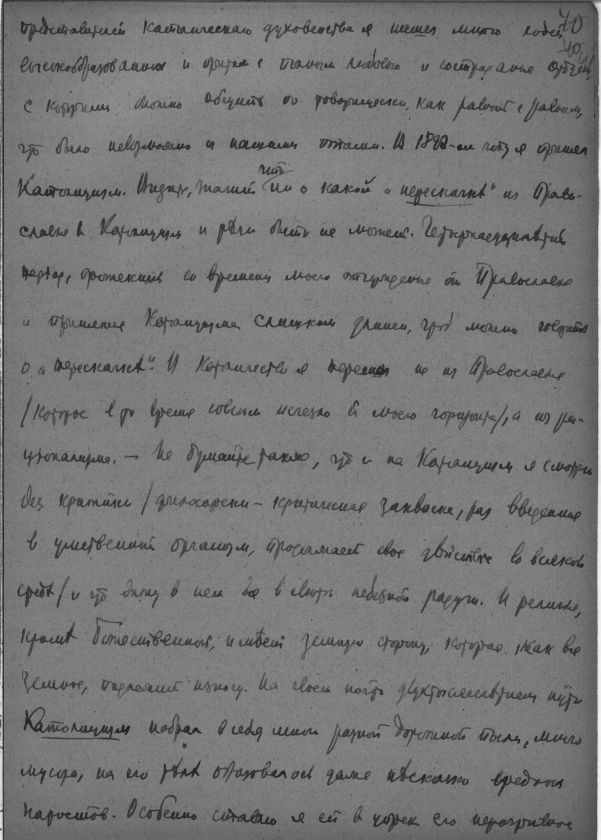 70
представителей католическаго духовенства я нашел много людей
высокообразованных и притом с полным любовью и сострадания сердцем
с которыми можно общаться по товарищески, как равный с равным,
что было невозможно с нашими попами. В 18 -ом году я принял
Католицизм. Видите, значит что ни о какой „перескачке" из Право-
славия в Католицизм и речи быть не может. Четырнадцатилетний
период, протекший со времени моего отчуждения от Православия
и принятия Католицизма слишком длинен, чтоб можно говорить
о „перескачке". И в Католичество я перешел не из Православия
/которое в то время совсем исчезло с моего горизонта/, а из ра-
ционализма. — Не думайте также, что и на Католицизм я смотрю
без критики /философски-критическая закваска, раз введенная
в умственный организм, продолжает свое действие во всякой
среде/ и что вижу в нем все в свете небесной радуги. И религия,
кромѣ божественной, имѣет земную сторону, которая, как все
земное, подлежит износу. На своем почти двухтысячелетнем пути
Католицизм набрал в себя много разной дорожной пыли, много
мусора, на его тѣлѣ образовалось даже нѣсколько вредных
наростов. Особенно ставлю я ей в упрек его